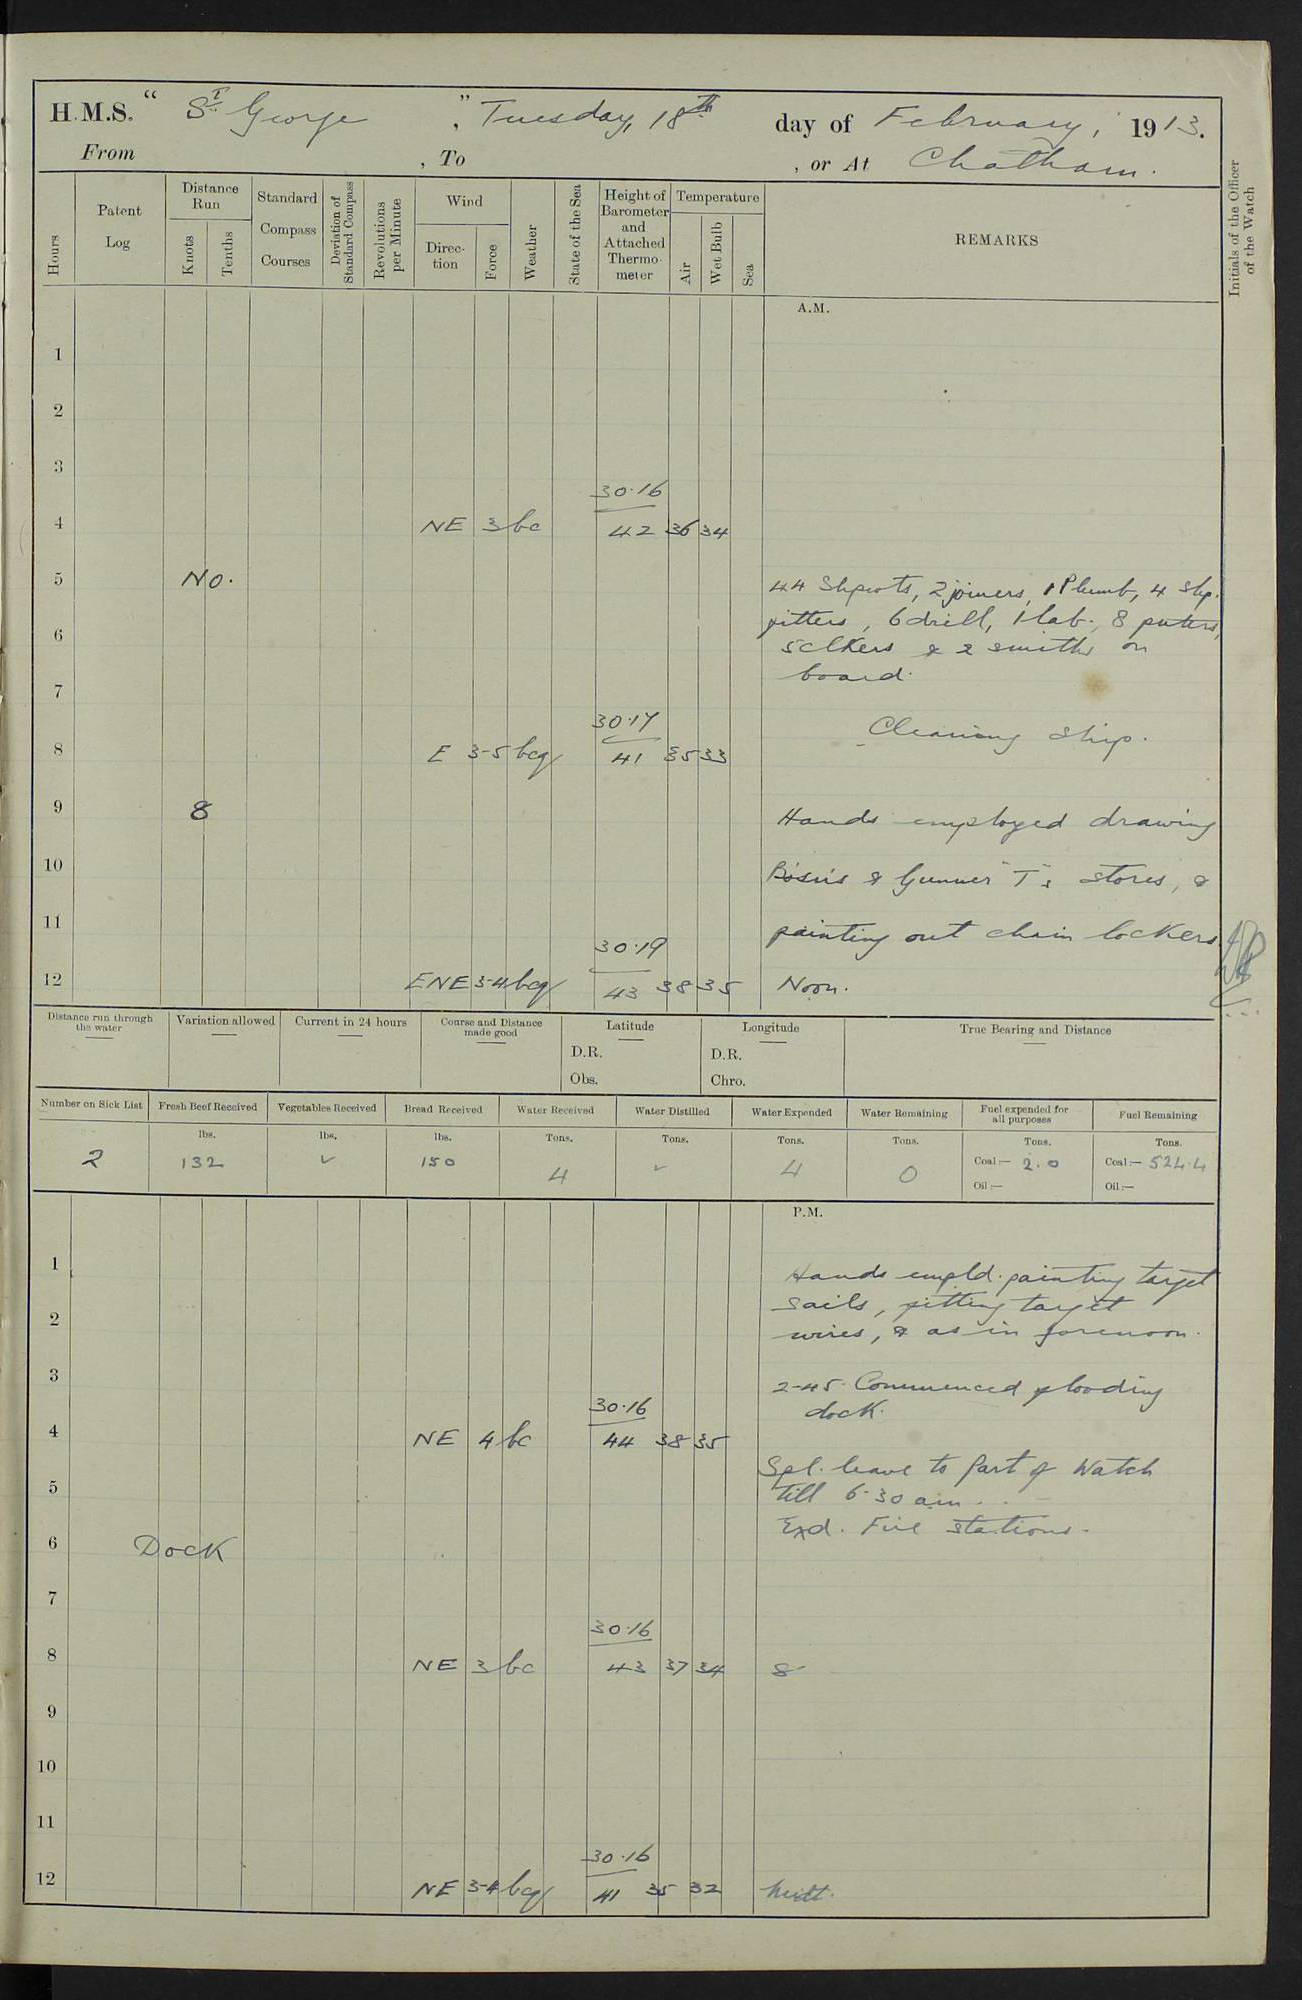 H.M.S. “ St. George ”, Tuesday, 18th day of February, 1913.
From , To , or At Chatham.
Hours
Patent Log
Distance Run
Knots
Tenths
Standard Compass Courses
Deviation of Standard Compass
Revolutions per Minute
Wind
Direction
Force
Weather
State of the Sea
Height of Barometer and Attached Thermometer
Temperature
Air
Wet Bulb
Sea
REMARKS
Initials of the Officer of the Watch
A.M.
1
2
3
30.16
4 NE 3 bc 42 36 34
5 No. 44 Shpwts, 2 joiners, 1 Plumb, 4 Shp.
fitters, 6 drill, 1 lab.,
6
5 clkers & 2 smiths on
board.
7
30.17
Cleaning ship.
8 E 3-5 bcq 41 35 33
9 8 Hands employed drawing
10 Bosn's & Gunner "T"s stores, &
11 painting out chain lockers.
30.19
12 ENE 3-4 bcq 43 38 35 Noon.
Distance run through the water
Variation allowed
Current in 24 hours
Course and Distance made good
Latitude
D.R.
Obs.
Longitude
D.R.
Chro.
True Bearing and Distance
Number on Sick List
Fresh Beef Received
Vegetables Received
Bread Received
Water Received
Water Distilled
Water Expended
Water Remaining
Fuel expended for all purposes
Fuel Remaining
lbs. lbs. lbs. Tons. Tons. Tons. Tons. Tons. Tons.
2 132 ✓ 150 4 ✓ 4 0 Coal:— 2.0 Coal:— 524.4
Oil:— Oil:—
P.M.
1 Hands empld. painting target
sails, fitting target
2 wires, & as in forenoon.
3 2-45. Commenced flooding
dock.
30.16
4 NE 4 bc 44 38 35
Spl. leave to Part of Watch
5 till 6.30 am.
Exd. Fire stations.
6 Dock
7
30.16
8 NE 3 bc 43 37 34 8
9
10
11
30.16
12 NE 3-4 bcq 41 35 32 Midt.